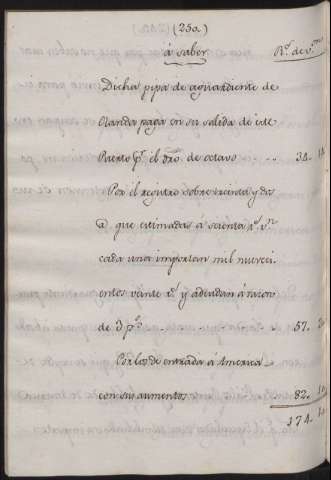 (250)
á saber R.s de v.on
Dicha pipa de aguardiente de
Olanda paga en su salida de este
Puerto p.r el dro. de octavo .. 34. 14
Por el registro sobre treinta y dos
@ que estimadas á sesenta r.s v.n
cada una importan mil nueveci-
entos veinte r.s y adeudan á razon
de 3 p% . . . 57.
Por las de entrada á America
con sus aumentos 82. 14
174.